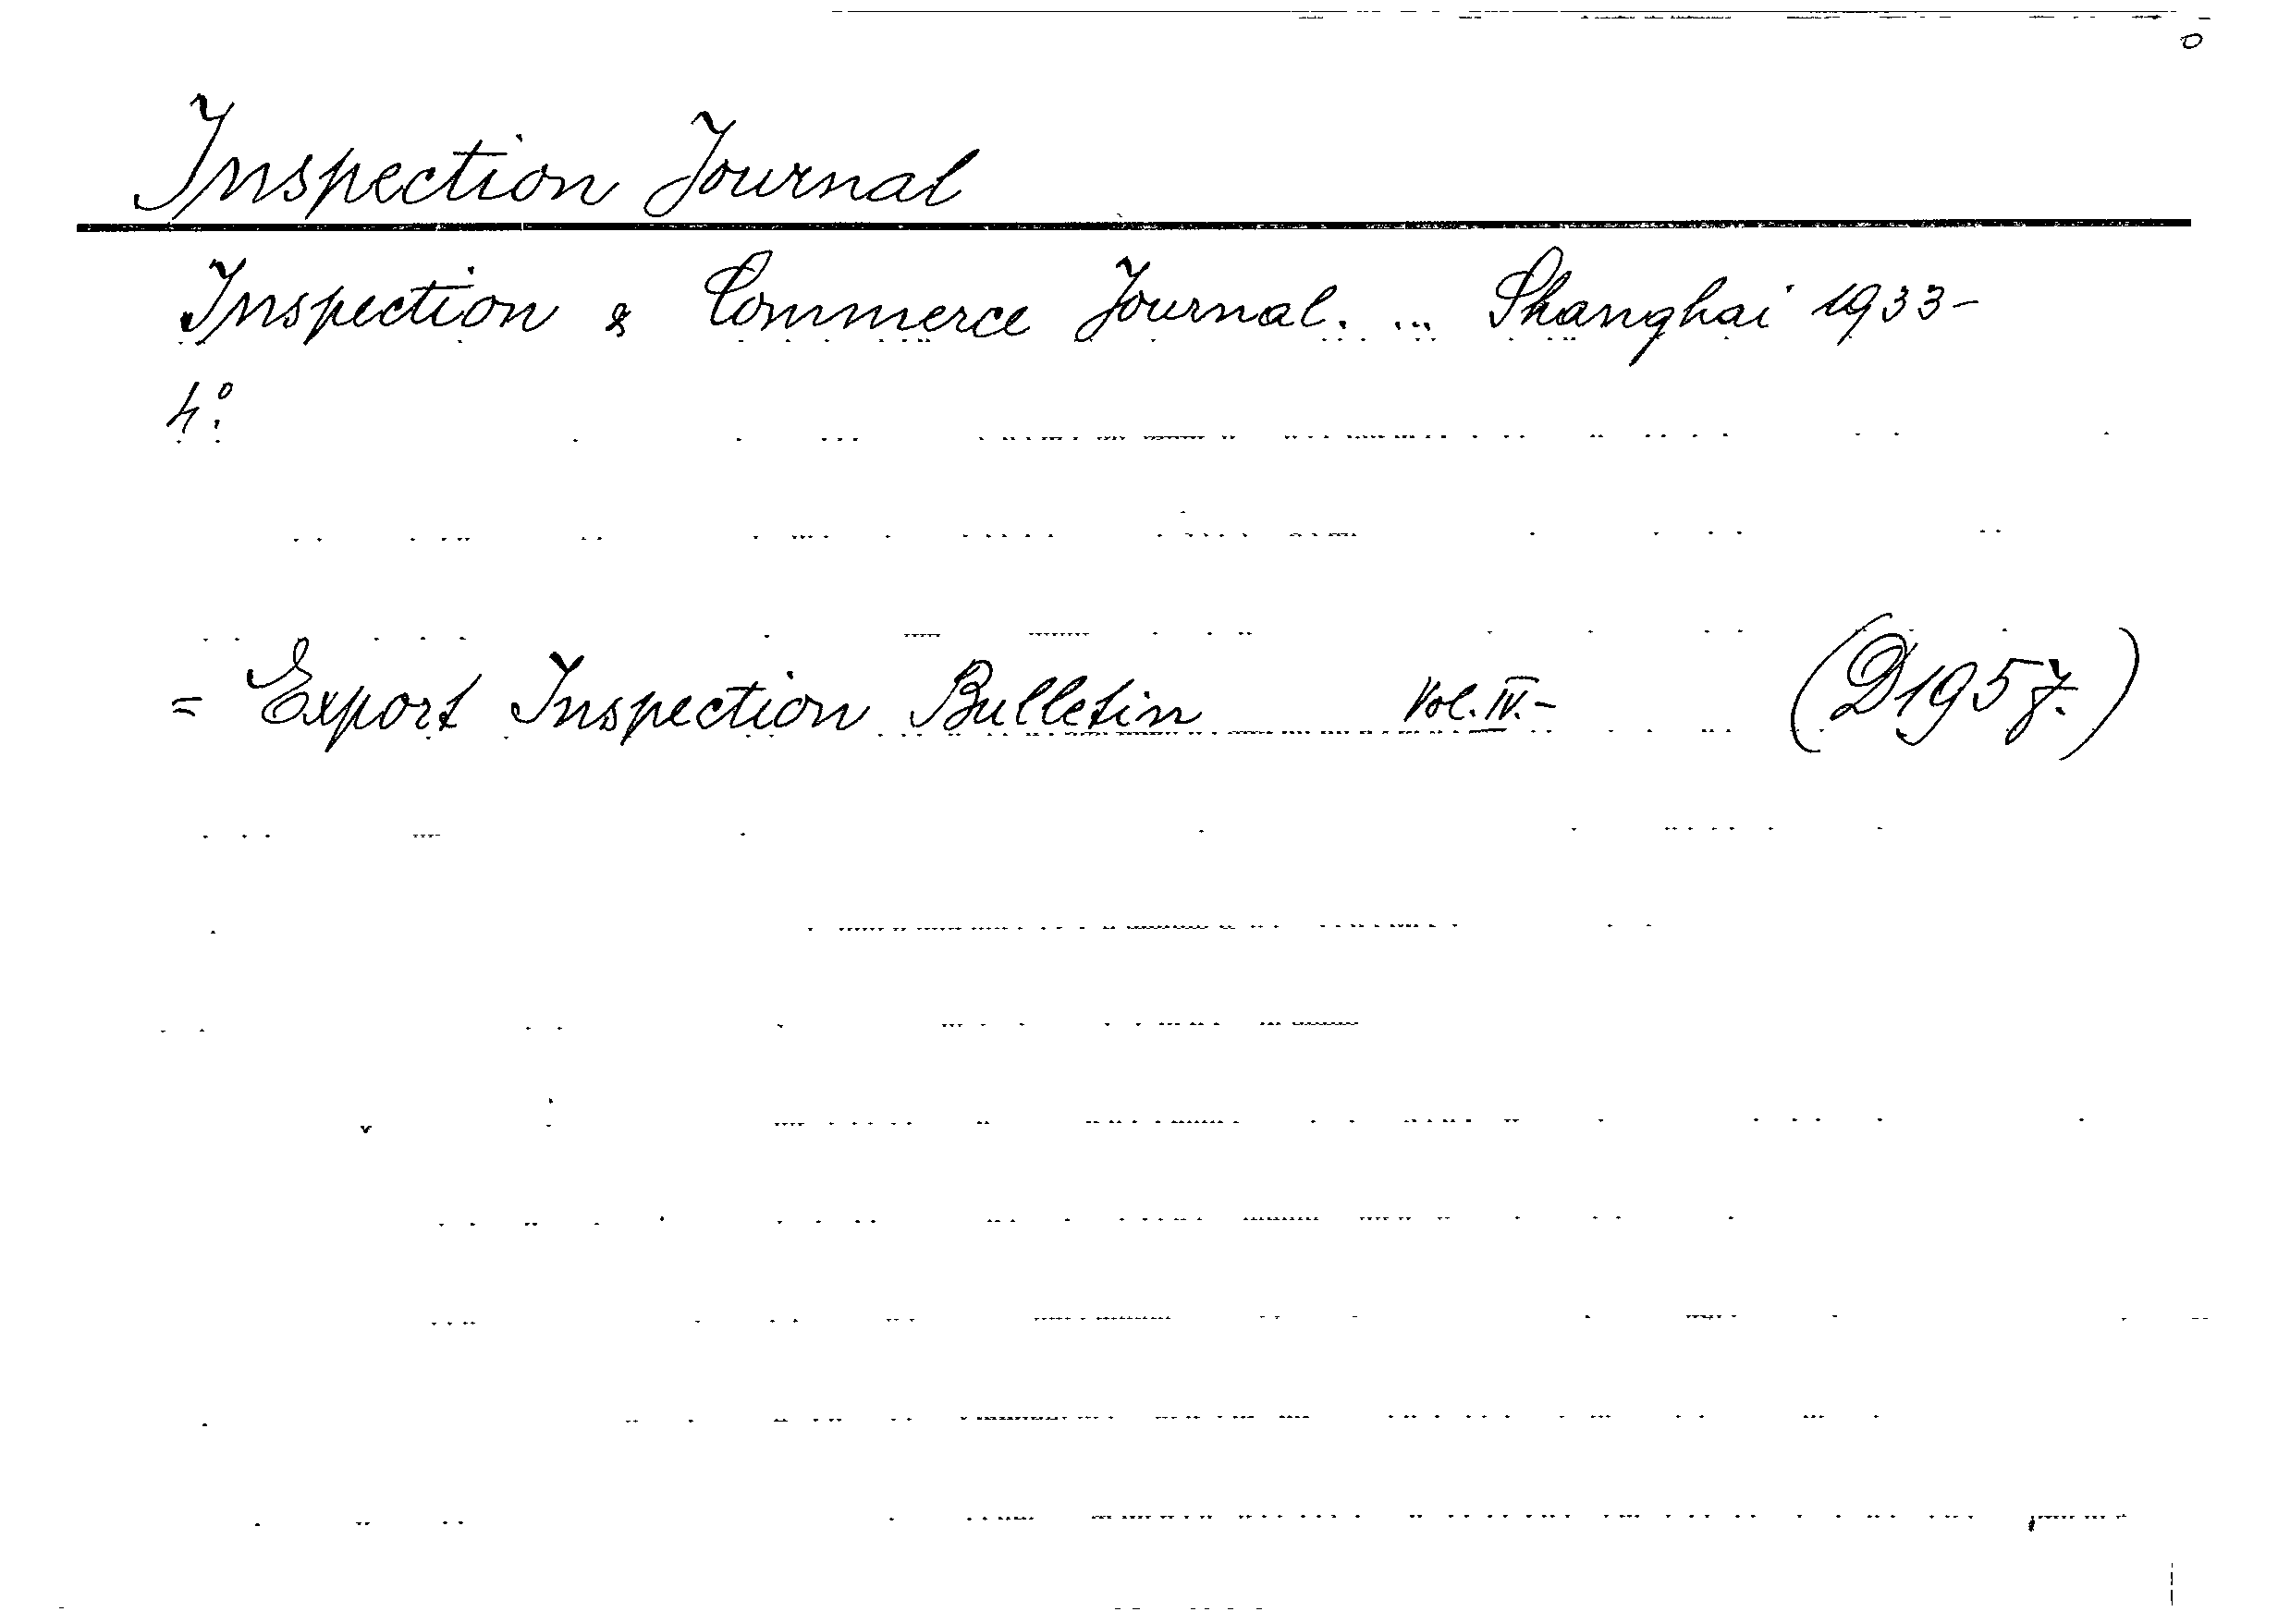 Inspection Journal
Inspection & Commerce Journal. ... Shanghai 1933-
4°.
= Export Inspection Bulletin Vol. IV.- (D1957.)